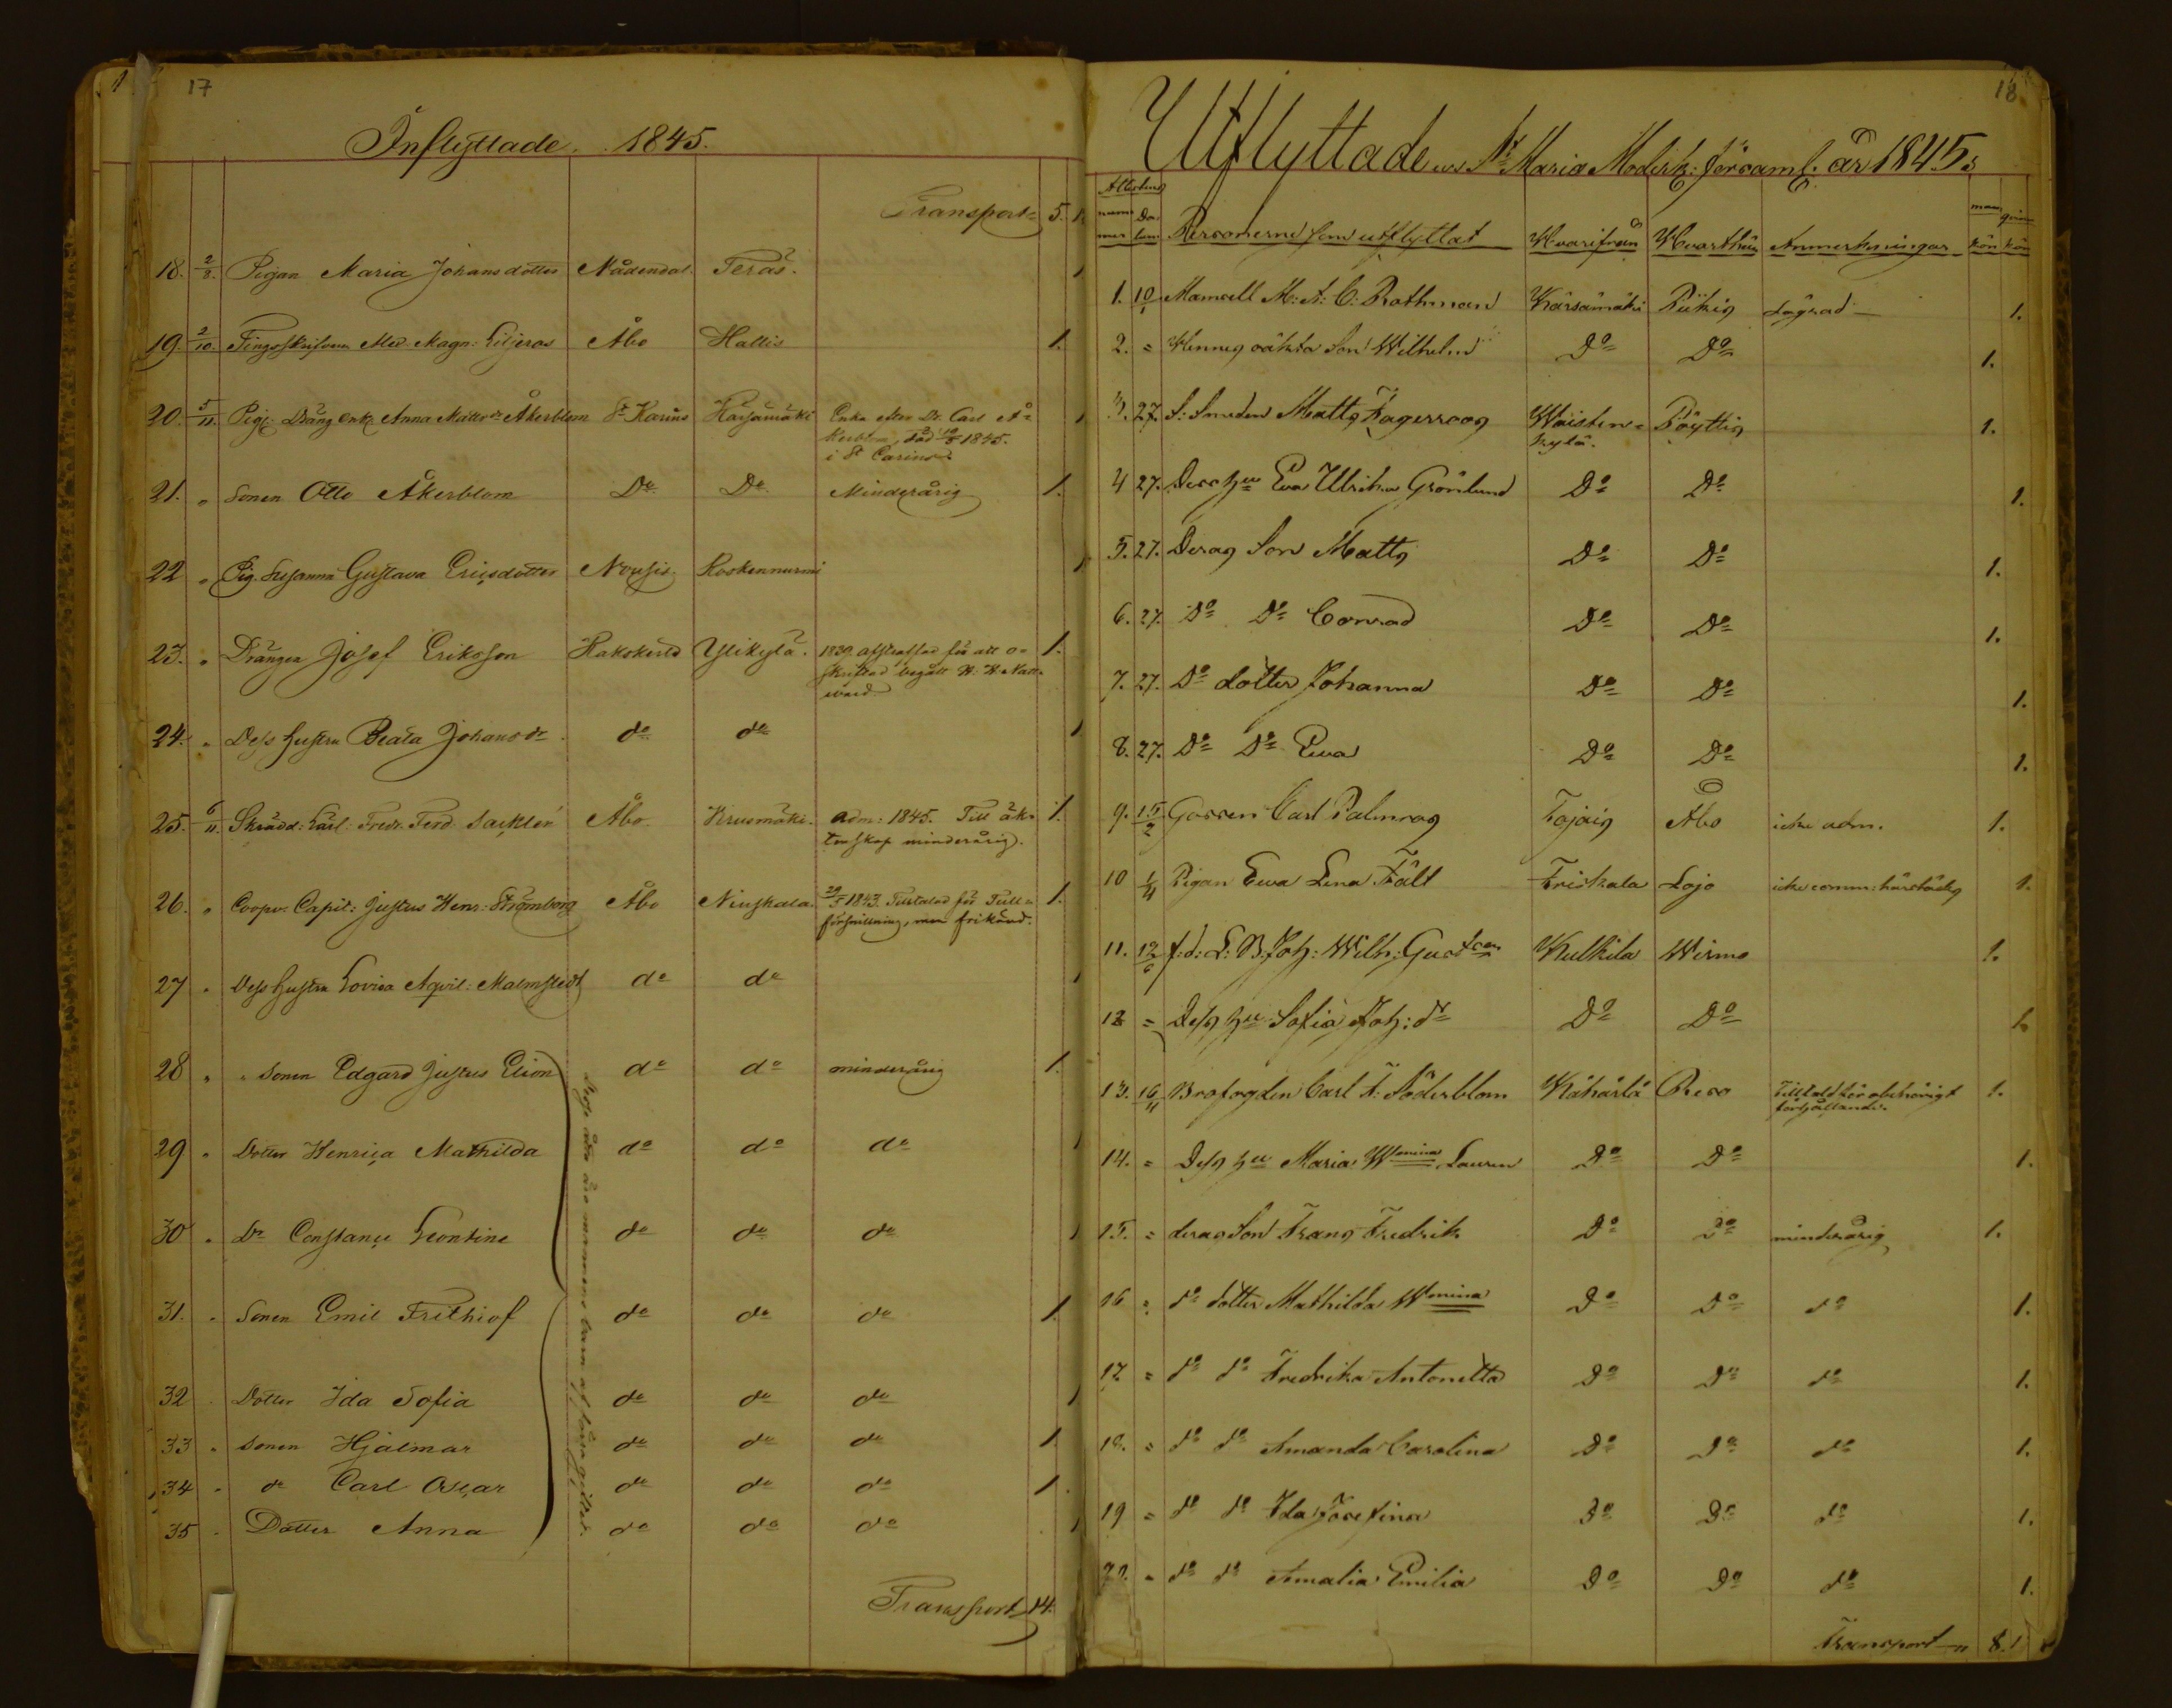 17
Inflyttade. 1845.
Transport 5.
18. 2/8. Pigan Maria Johansdotter Nådendal. Teräs. 1
19. 2/10. Tingsskrifvaren Med. Magn: Liljeros Åbo Hallis 1.
20. 5/11. Pig. Dräng Enk. Anna Mattsdr Åkerblom St Karins Härjämäki Enka efter Dr. Carl Å=
kerblom, död 1845.
i St Carins.
21. " Sonen Otto Åkerblom Do Do Minderårig 1.
22 " Pig. Susanna Gustava Ericsdotter Nousis. Kookennurmi 1
23. " Drängen Josef Eriksson Ylikylä. 1839 afstraffad för att o=
skriftad begått H. H. Natt=
ward 1.
24. " Dess hustru Beata Johansdr do do 1
25. 6/11 Skrädd: Lärl: Fredr. Ferd. Sacklén Åbo. Krusmäki. Adm: 1845. Till äk=
tenskap minderårig. 1.
26. " Coopv. Capit: Justus Henr: Strömborg Åbo Niuskala. 1843. Tilltalad för Tull=
försnillning, men frikänd. 1.
27 " Dess hustru Lovisa Aqvil: Malmstedt do do 1
28 " " Sonen Edgard Justus Elion do do minderårig 1.
29 " Dotter Henrica Mathilda do do do 1
30 " Dr Constance Leontine do do do 1
31. " Sonen Emil Frithiof do do do 1.
32 " Dotter Ida Sofia do do do 1
33 " Sonen Hjalmar do do do 1
34 " do Carl Oscar do do do 1
35 " Dotter Anna do do do 1
Transport 14.
18
Utflyttade ur St Maria Moderk: församl. år 1845.
Attestens
num=
mer Da=
tum Personerne som utflyttat Hvarifrån Hvarthän Anmerkningar man
kön qvin
kön
1. 10/1 Mamsell M: A: C: Rothman Kärsämäki Piikis Lägrad 1.
2. = Hennes oäkta Son Wilhelm Do Do 1.
3. 27. S: Smeden Matts Fagerroos Waisten=
kylä. Pöytis 1.
4 27. Dess hu Eva Ulrika Grönlund Do Do 1.
5. 27. Deras Son Matts Do Do 1.
6. 27. Do Do Conrad Do Do 1.
7. 27. Do dotter Johanna Do Do 1.
8. 27. Do Do Ewa Do Do 1.
9. 15/2 Gossen Carl Palmros Åbo icke adm. 1.
10 1/4 Pigan Ewa Lena Fält Friskala Lojo icke comm: härstädes 1.
11. 12/6 f: d: L: B. Joh: Wilh: Gustson Kulkila Wirmo 1.
12 = Dess hu Sofia Joh: dr Do Do 1.
13. 16/11 Brofogden Carl F: Söderblom Kähärlä Reso Tilltald för obehörigt
förhållande. 1.
14. = Dess hu Maria Wmina Lauren Do Do 1.
15. = deras Son Frans Fredrik Do Do minderårig 1.
16 = do dotter Mathilda Wmina Do Do do 1.
17 = do do Fredrika Antonetta Do Do do 1.
18. = do do Amanda Carolina Do Do do 1.
19 = do do Ida Josefina Do Do do 1.
20. = do do Amalia Emilia Do Do do 1.
Transport 8.